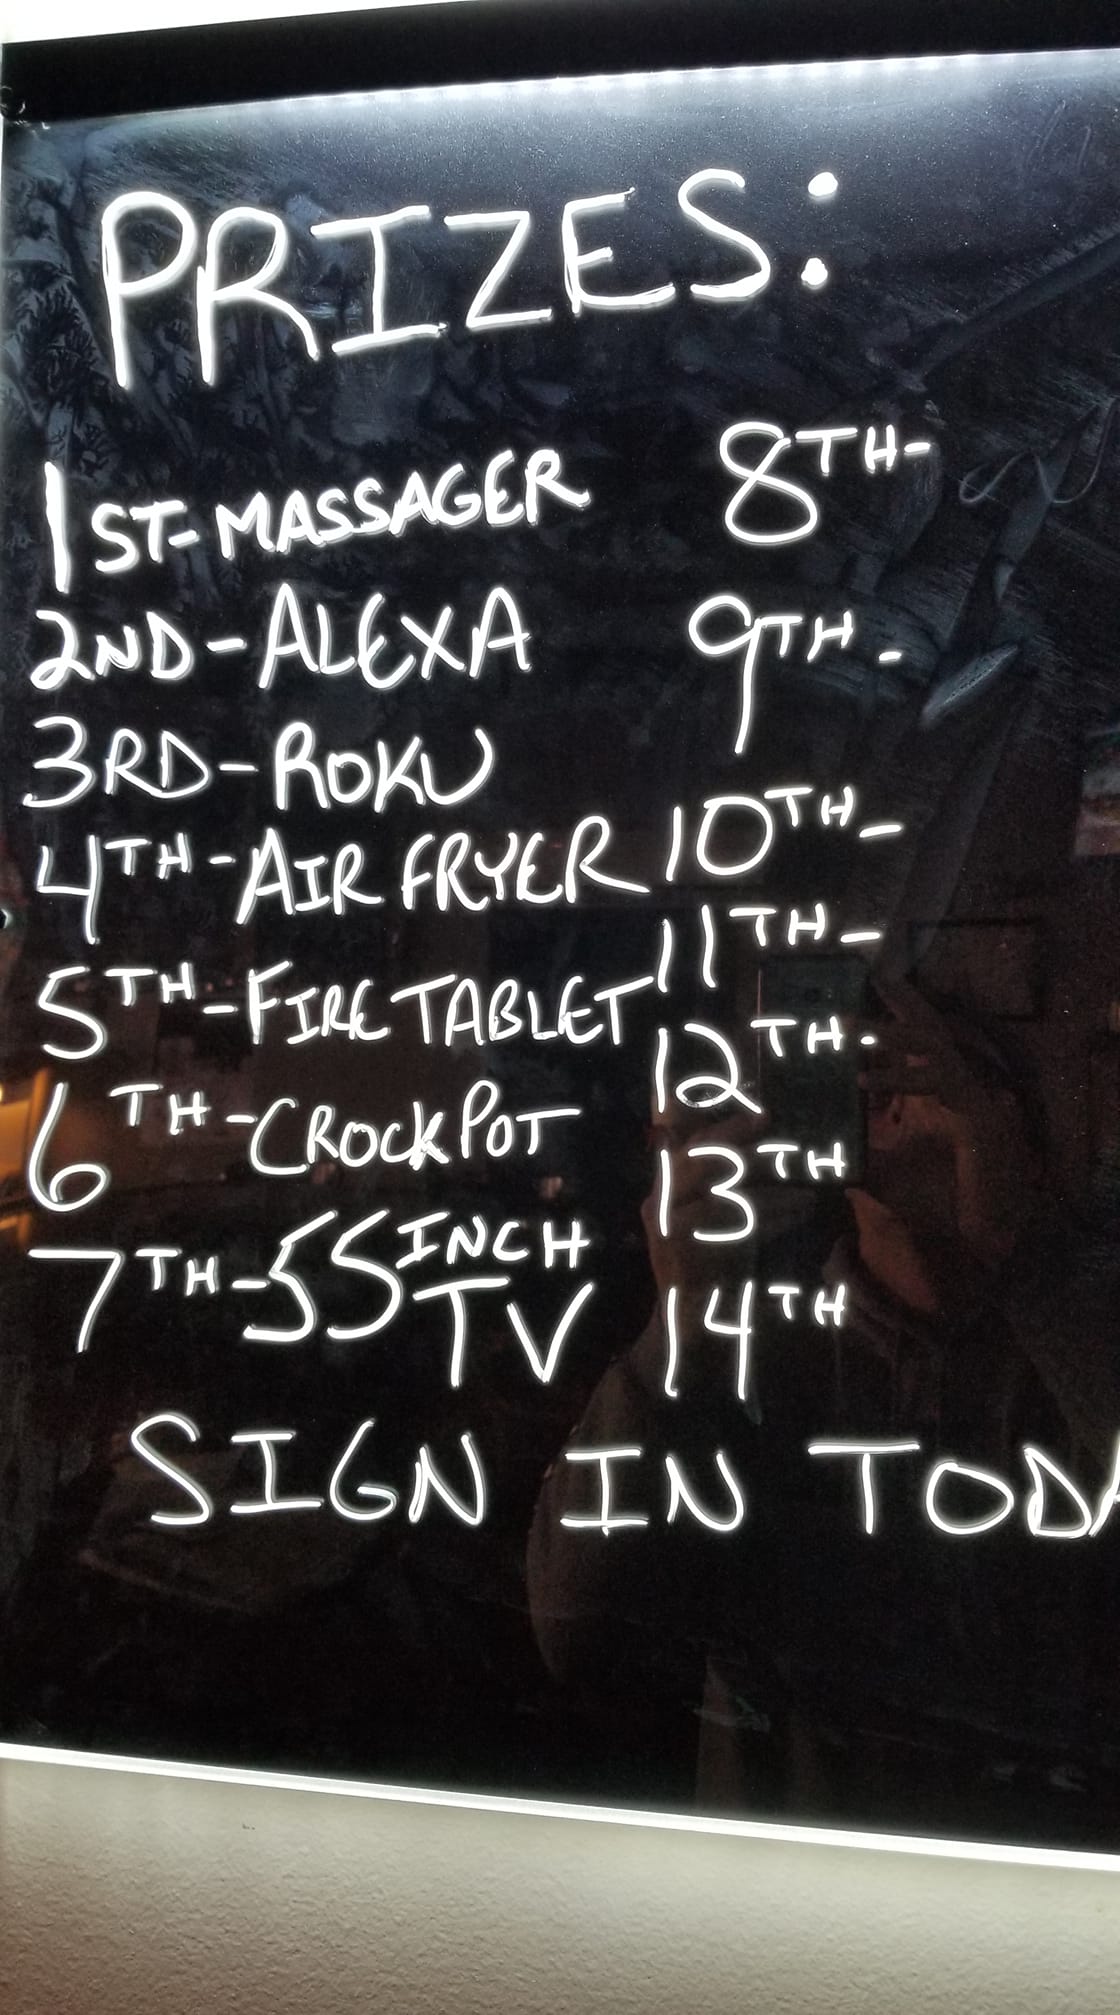 PRIZES:
1ST-MASSAGER
2ND-ALEXA
3RD-ROKU
4TH-AIR FRYER
5TH-FIRE TABLET
6TH-CROCKPOT
7TH-55 INCH
TV
8TH-
9TH-
10TH-
11TH-
12TH-
13TH
14TH
SIGN IN TODA